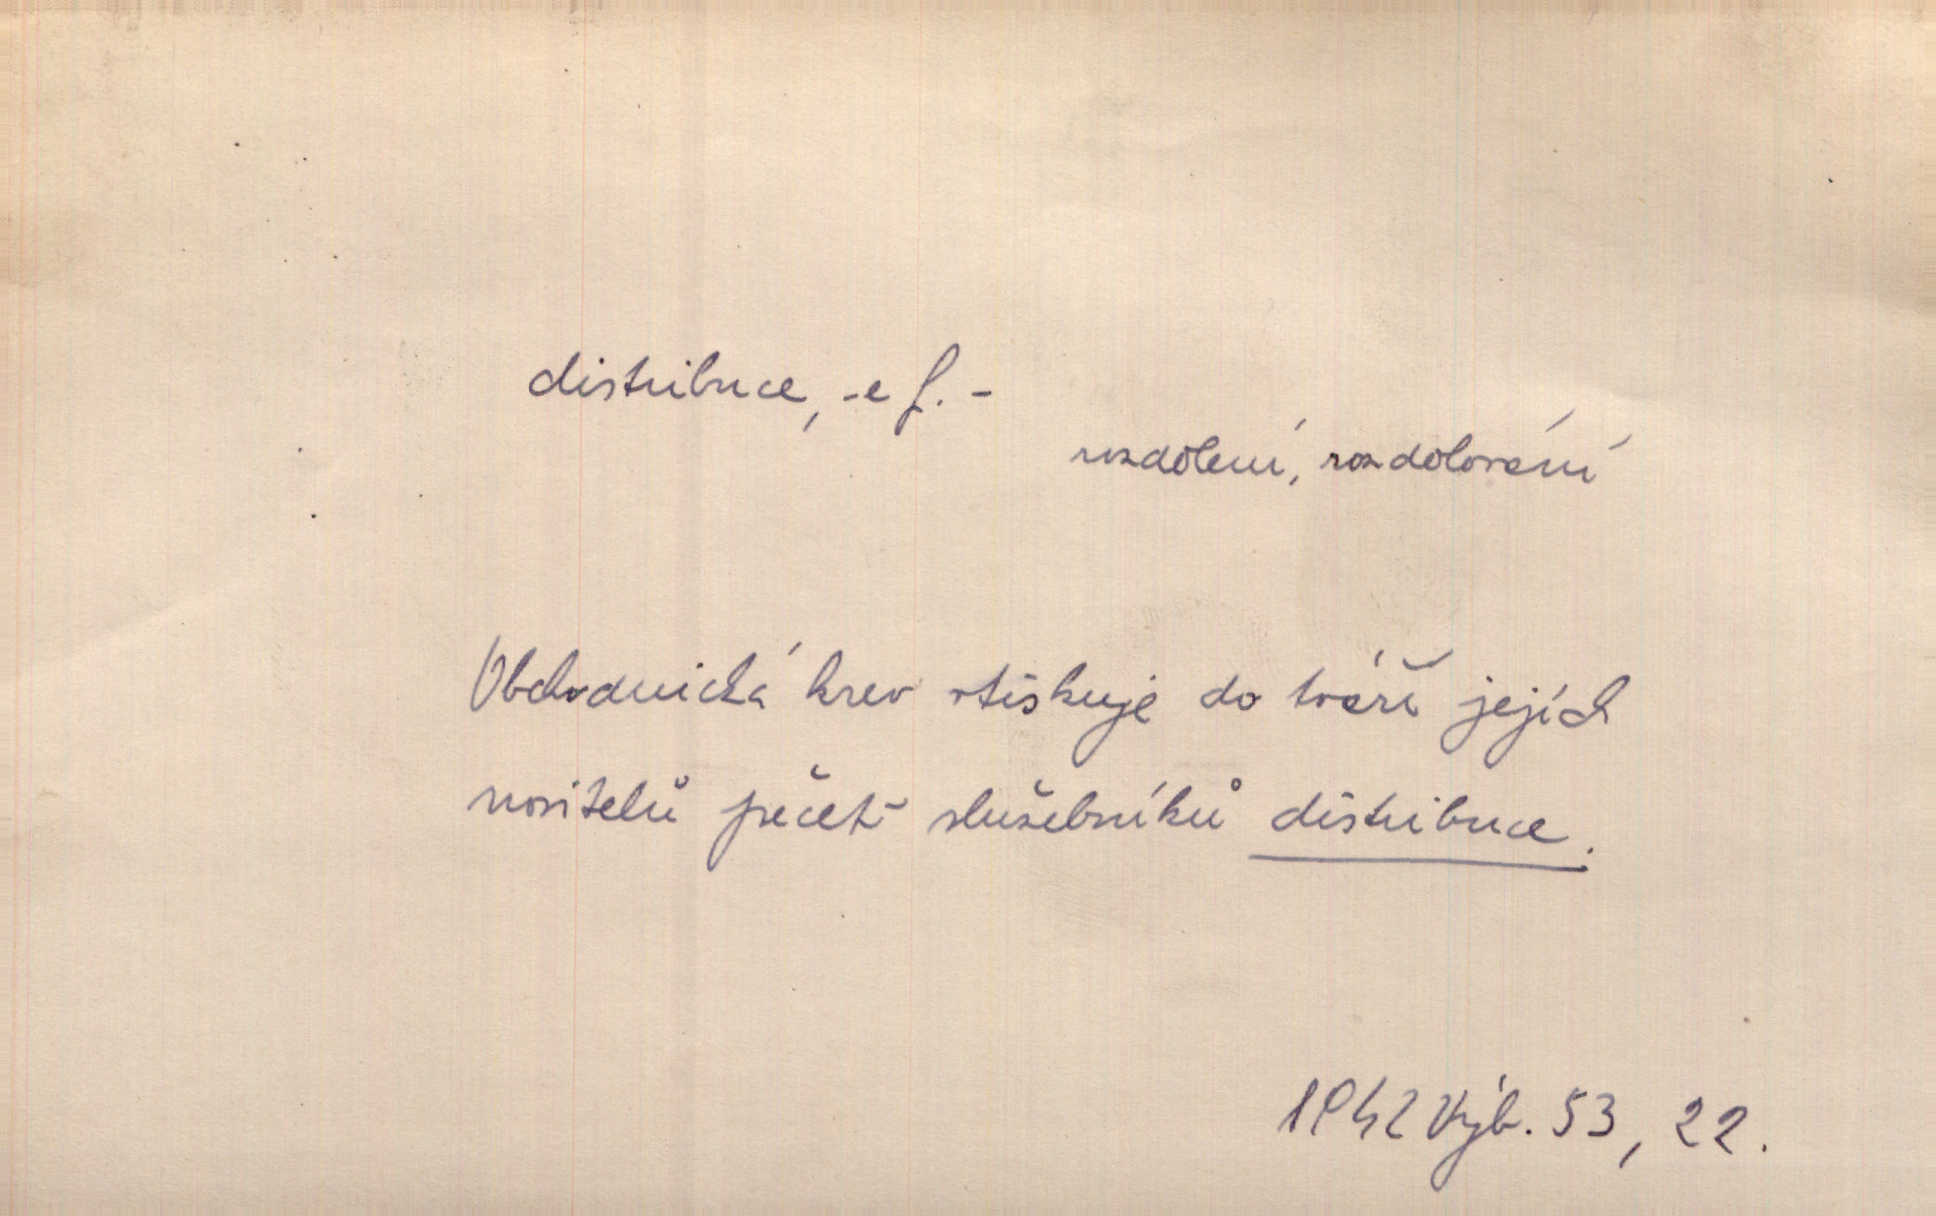 distribuce, -e f. -
rozdělení, rozdělování
Obchodnická krev vtiskuje do tváří jejích
nositelů pečeť služebníků distribuce.
1942 Výb. 53, 22.